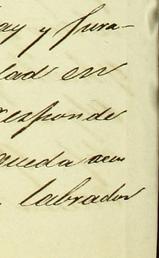 ay y fura-
dad en
responde
queda a su
labrador